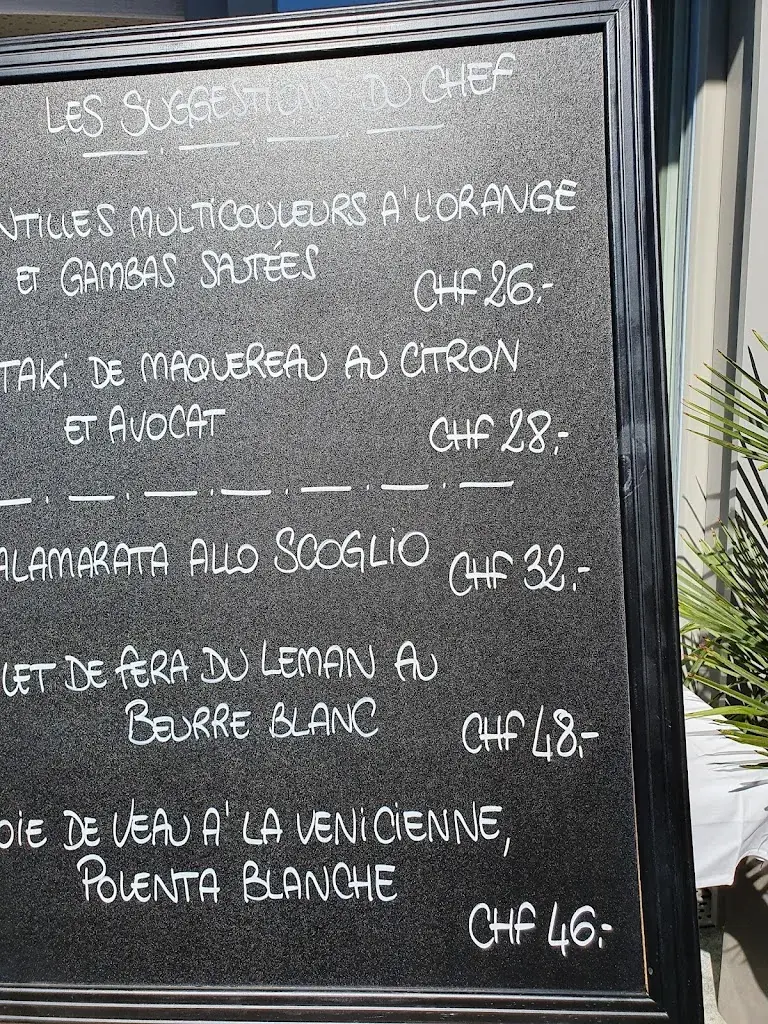 LES SUGGESTIONS DU CHEF
NTILLES MULTICOULEURS A' L'ORANGE
ET GAMBAS SAUTÉES
CHF 26.-
TAKI DE MAQUEREAU AU CITRON
ET AVOCAT
CHF 28.-
ALAMARATA ALLO SCOGLIO CHF 32.-
LET DE FERA DU LEMAN AU
BEURRE BLANC
CHF 48.-
OIE DE VEAU A' LA VENICIENNE,
POLENTA BLANCHE
CHF 46.-